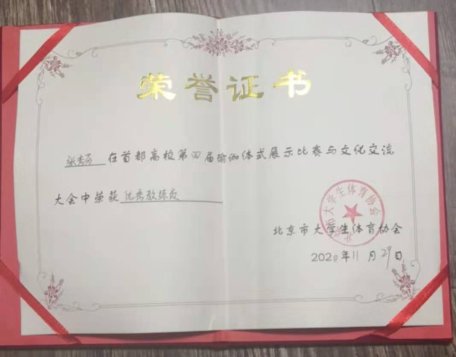 荣誉证书
在首都高校第四届瑜伽体式展示比赛与文化交流
大会中荣获优秀教练员
北京市大学生体育协会
2020年11月29日